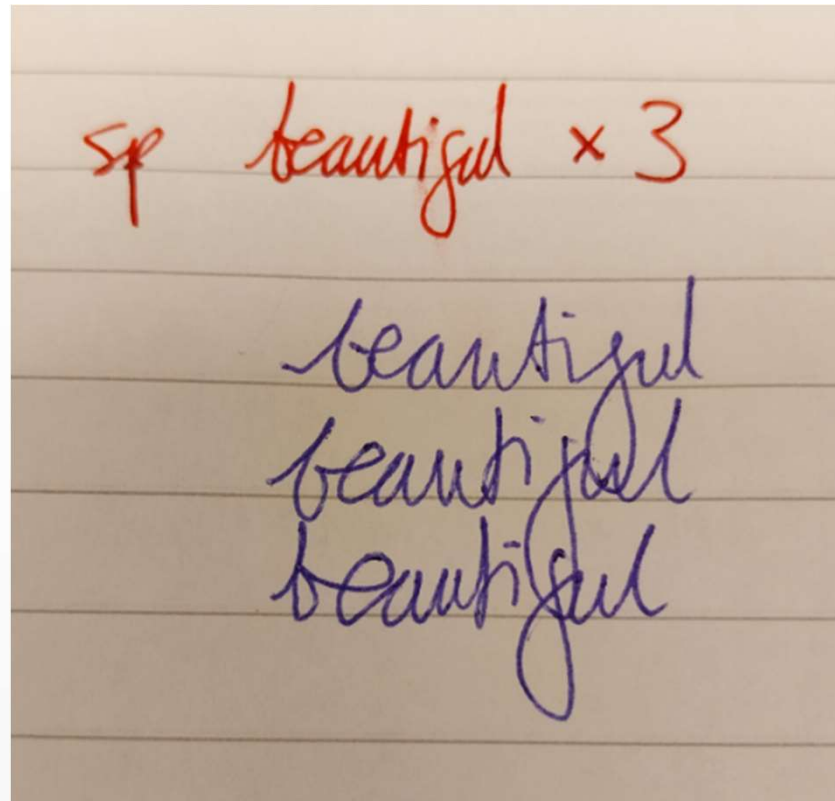 sp beautiful × 3
beautiful
beautiful
beautiful